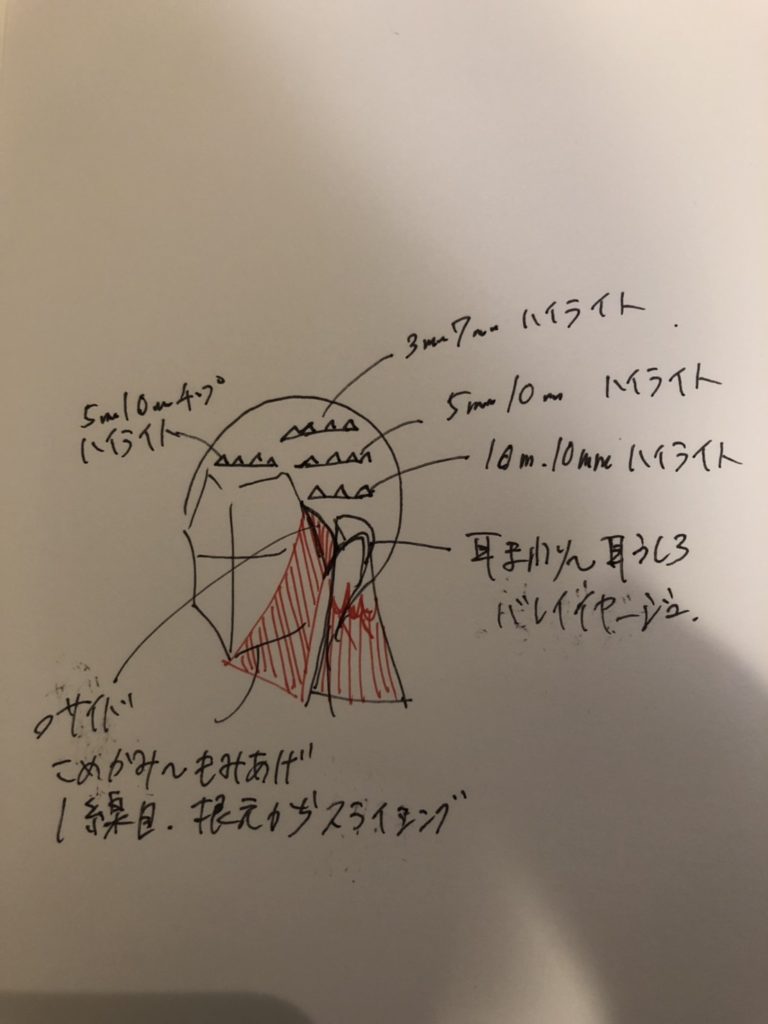 3mm7mm ハイライト
5mm10mmチップ
ハイライト
5mm10mm ハイライト
10mm.10mm ハイライト
耳まわり〜耳うしろ
バレイヤージュ.
サイド
こめかみ〜もみあげ
1線目.根元からスライシング